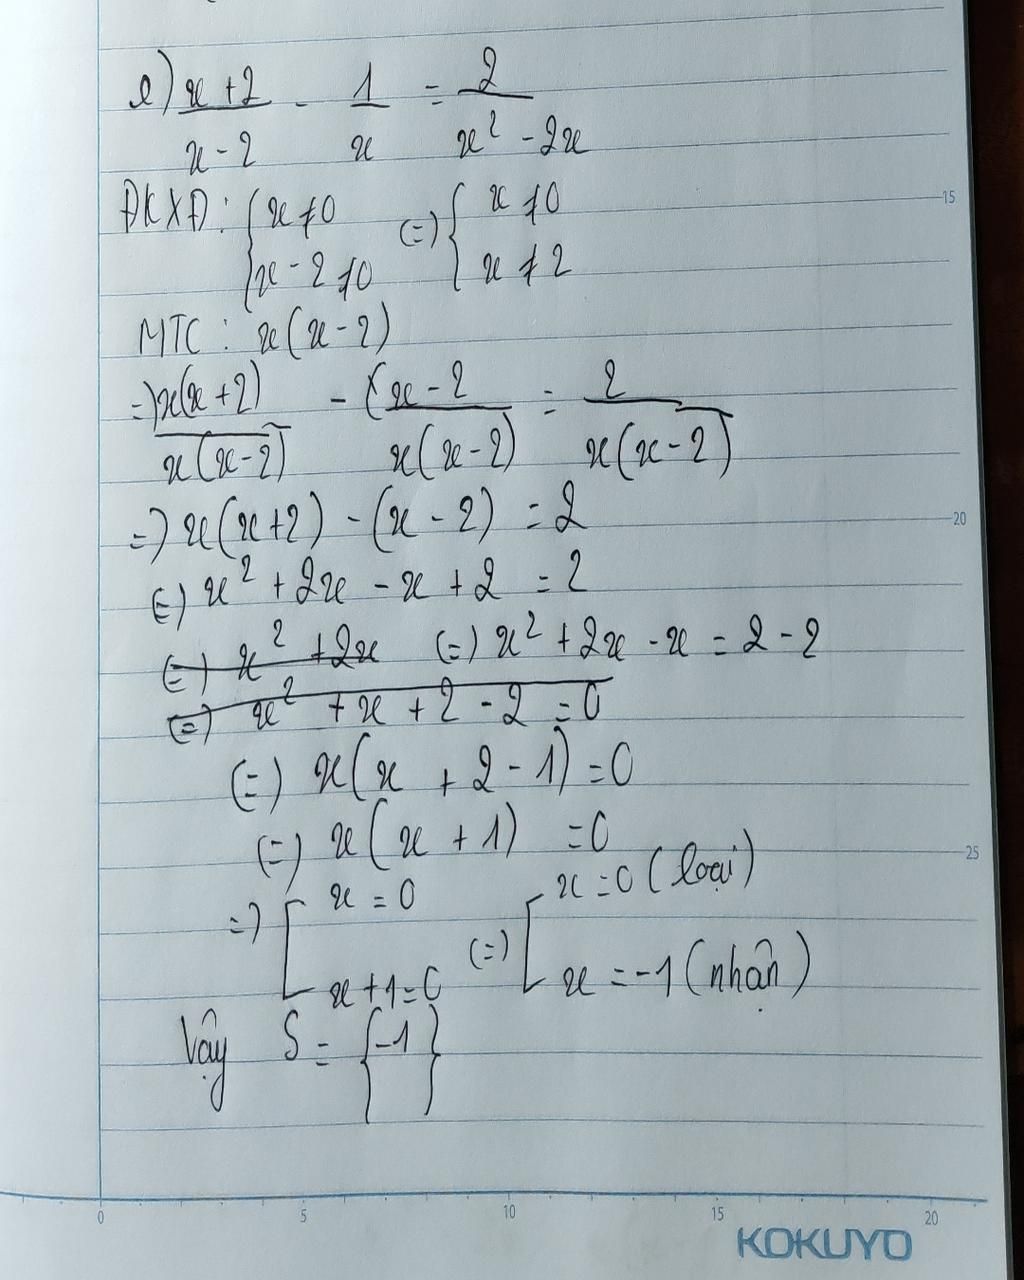 e) x+2/x-2 - 1/x = 2/x² - 2x
ĐKXĐ: { x≠0 (=) { x≠0
x-2≠0 x≠2
MTC: x(x-2)
=) x(x+2)/x(x-2) - (x-2/x(x-2) = 2/x(x-2)
=) x(x+2) - (x-2) = 2
(=) x² + 2x - x + 2 = 2
(=) x² + 2x (=) x² + 2x - x = 2 - 2
(=) x² + x + 2 - 2 = 0
(=) x(x + 2 - 1) = 0
(=) x(x + 1) = 0
=) [ x = 0 (=) [ x = 0 (loại)
x+1=0 x = -1 (nhận)
Vậy S = {-1}
15
20
25
0 5 10 15 20
KOKUYO